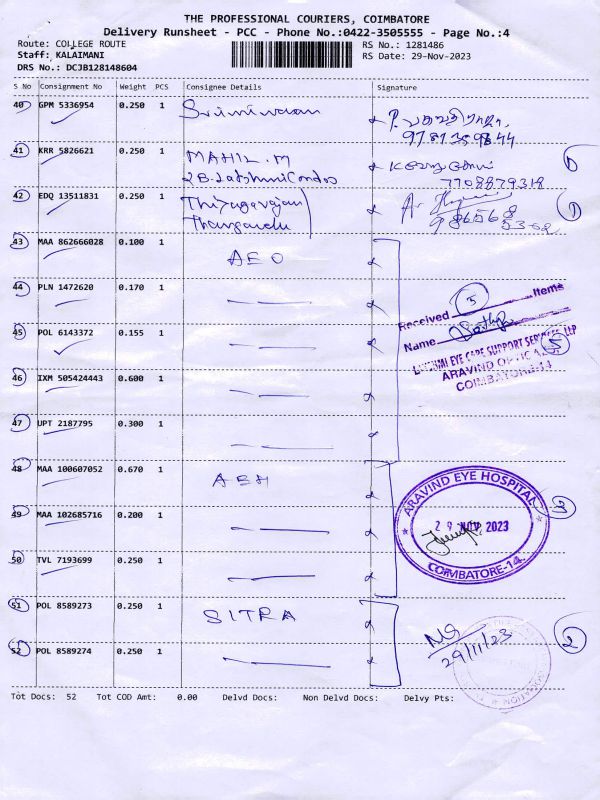 THE PROFESSIONAL COURIERS, COIMBATORE
Delivery Runsheet - PCC - Phone No.:0422-3505555 - Page No.:4
Route: COLLEGE ROUTE
RS No.: 1281486
Staff: KALAIMANI
RS Date: 29-Nov-2023
DRS No.: DCJB128148604
S No Consignment No Weight PCS Consignee Details Signature
40 GPM 5336954 0.250 1
41 KRR 5826621 0.250 1 MAHIL.M
2B. Lakshmi Condos
7708879318
1
42 EDQ 13511831 0.250 1 Thiyagarajan
986568
5308
1
43 MAA 862666028 0.100 1 AEO
44 PLN 1472620 0.170 1
Received 5 Items
45 POL 6143372 0.155 1
Name
5
LAKSHMI EYE CARE SUPPORT SERVICES LLP
46 IXM 505424443 0.600 1
ARAVIND OPTICALS
COIMBATORE-14
47 UPT 2187795 0.300 1
48 MAA 100607052 0.670 1 AEH
ARAVIND EYE HOSPITAL
3
49 MAA 102685716 0.200 1
29 NOV 2023
50 TVL 7193699 0.250 1
COIMBATORE-14.
51 POL 8589273 0.250 1 SITRA
NS
29/11/23
2
52 POL 8589274 0.250 1
Tot Docs: 52 Tot COD Amt: 0.00 Delvd Docs: Non Delvd Docs: Delvy Pts: